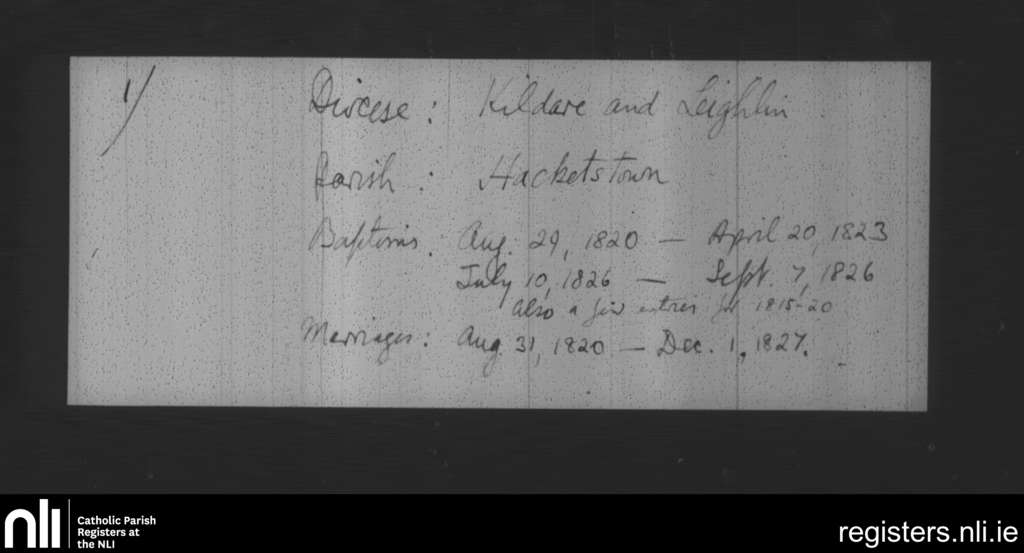 1/
Diocese: Kildare and Leighlin
Parish: Hacketstown
Baptisms: Aug. 29, 1820 — April 20, 1823
July 10, 1826 — Sept. 7, 1826
Also a few entries for 1815-20
Marriages: Aug. 31, 1820 — Dec. 1, 1827.
nli
Catholic Parish
Registers at
the NLI
registers.nli.ie